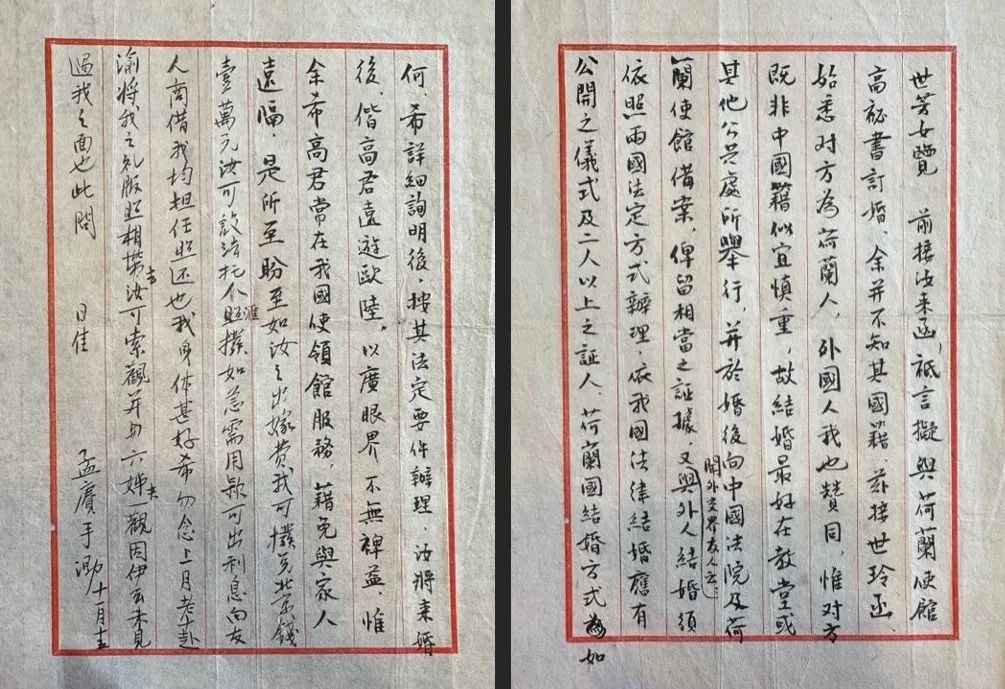 世芳女覽　前接汝来函，祇言擬與荷蘭使館
高祕書訂婚、余并不知其國籍、茲接世玲函
始悉对方為荷蘭人，外國人我也贊同　惟对方
既非中國籍似宜慎重，故結婚最好在教堂或
其他公共處所舉行，并於婚後向中國法院及荷
蘭使館備案，俾留相當之証據，又聞外交界友人云：與外人結婚須
依照兩國法定方式辦理，依我國法律結婚應有
公開之儀式及二人以上之証人、荷蘭國結婚方式為如
何、希詳細詢明後，按其法定要件辦理、汝將来婚
後，偕高君遠遊歐陸，以廣眼界　不無裨益，惟
余希高君常在我國使領館服務，藉免與家人
遠隔，是所至盼至如汝之出嫁費我可撥兑北京錢
壹萬元汝可設法托人匯撥如急需用款可出利息向友
人商借我均担任照还也我身体甚好希勿念上月老十赴
渝將我之礼服照相帶去汝可索觀并与六姊夫一觀因伊云未見
過我之面也此問　日佳　孟賡手泐　十一月